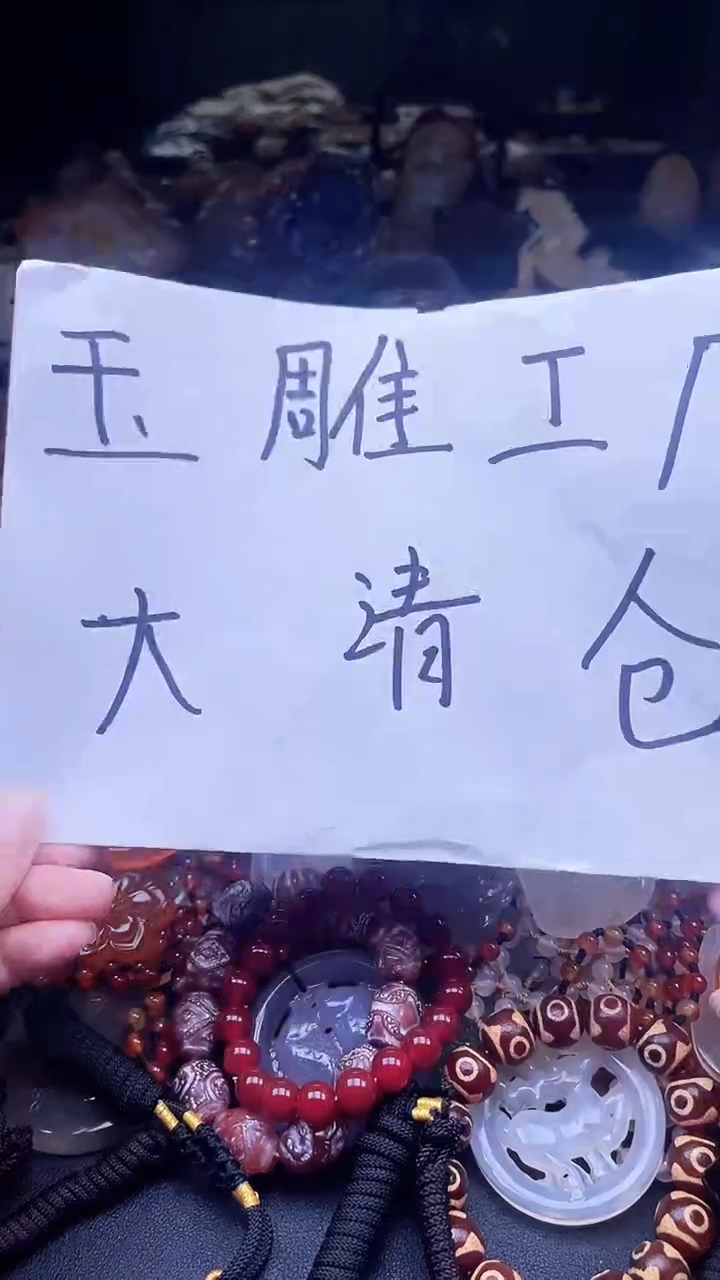 玉雕工厂
大清仓